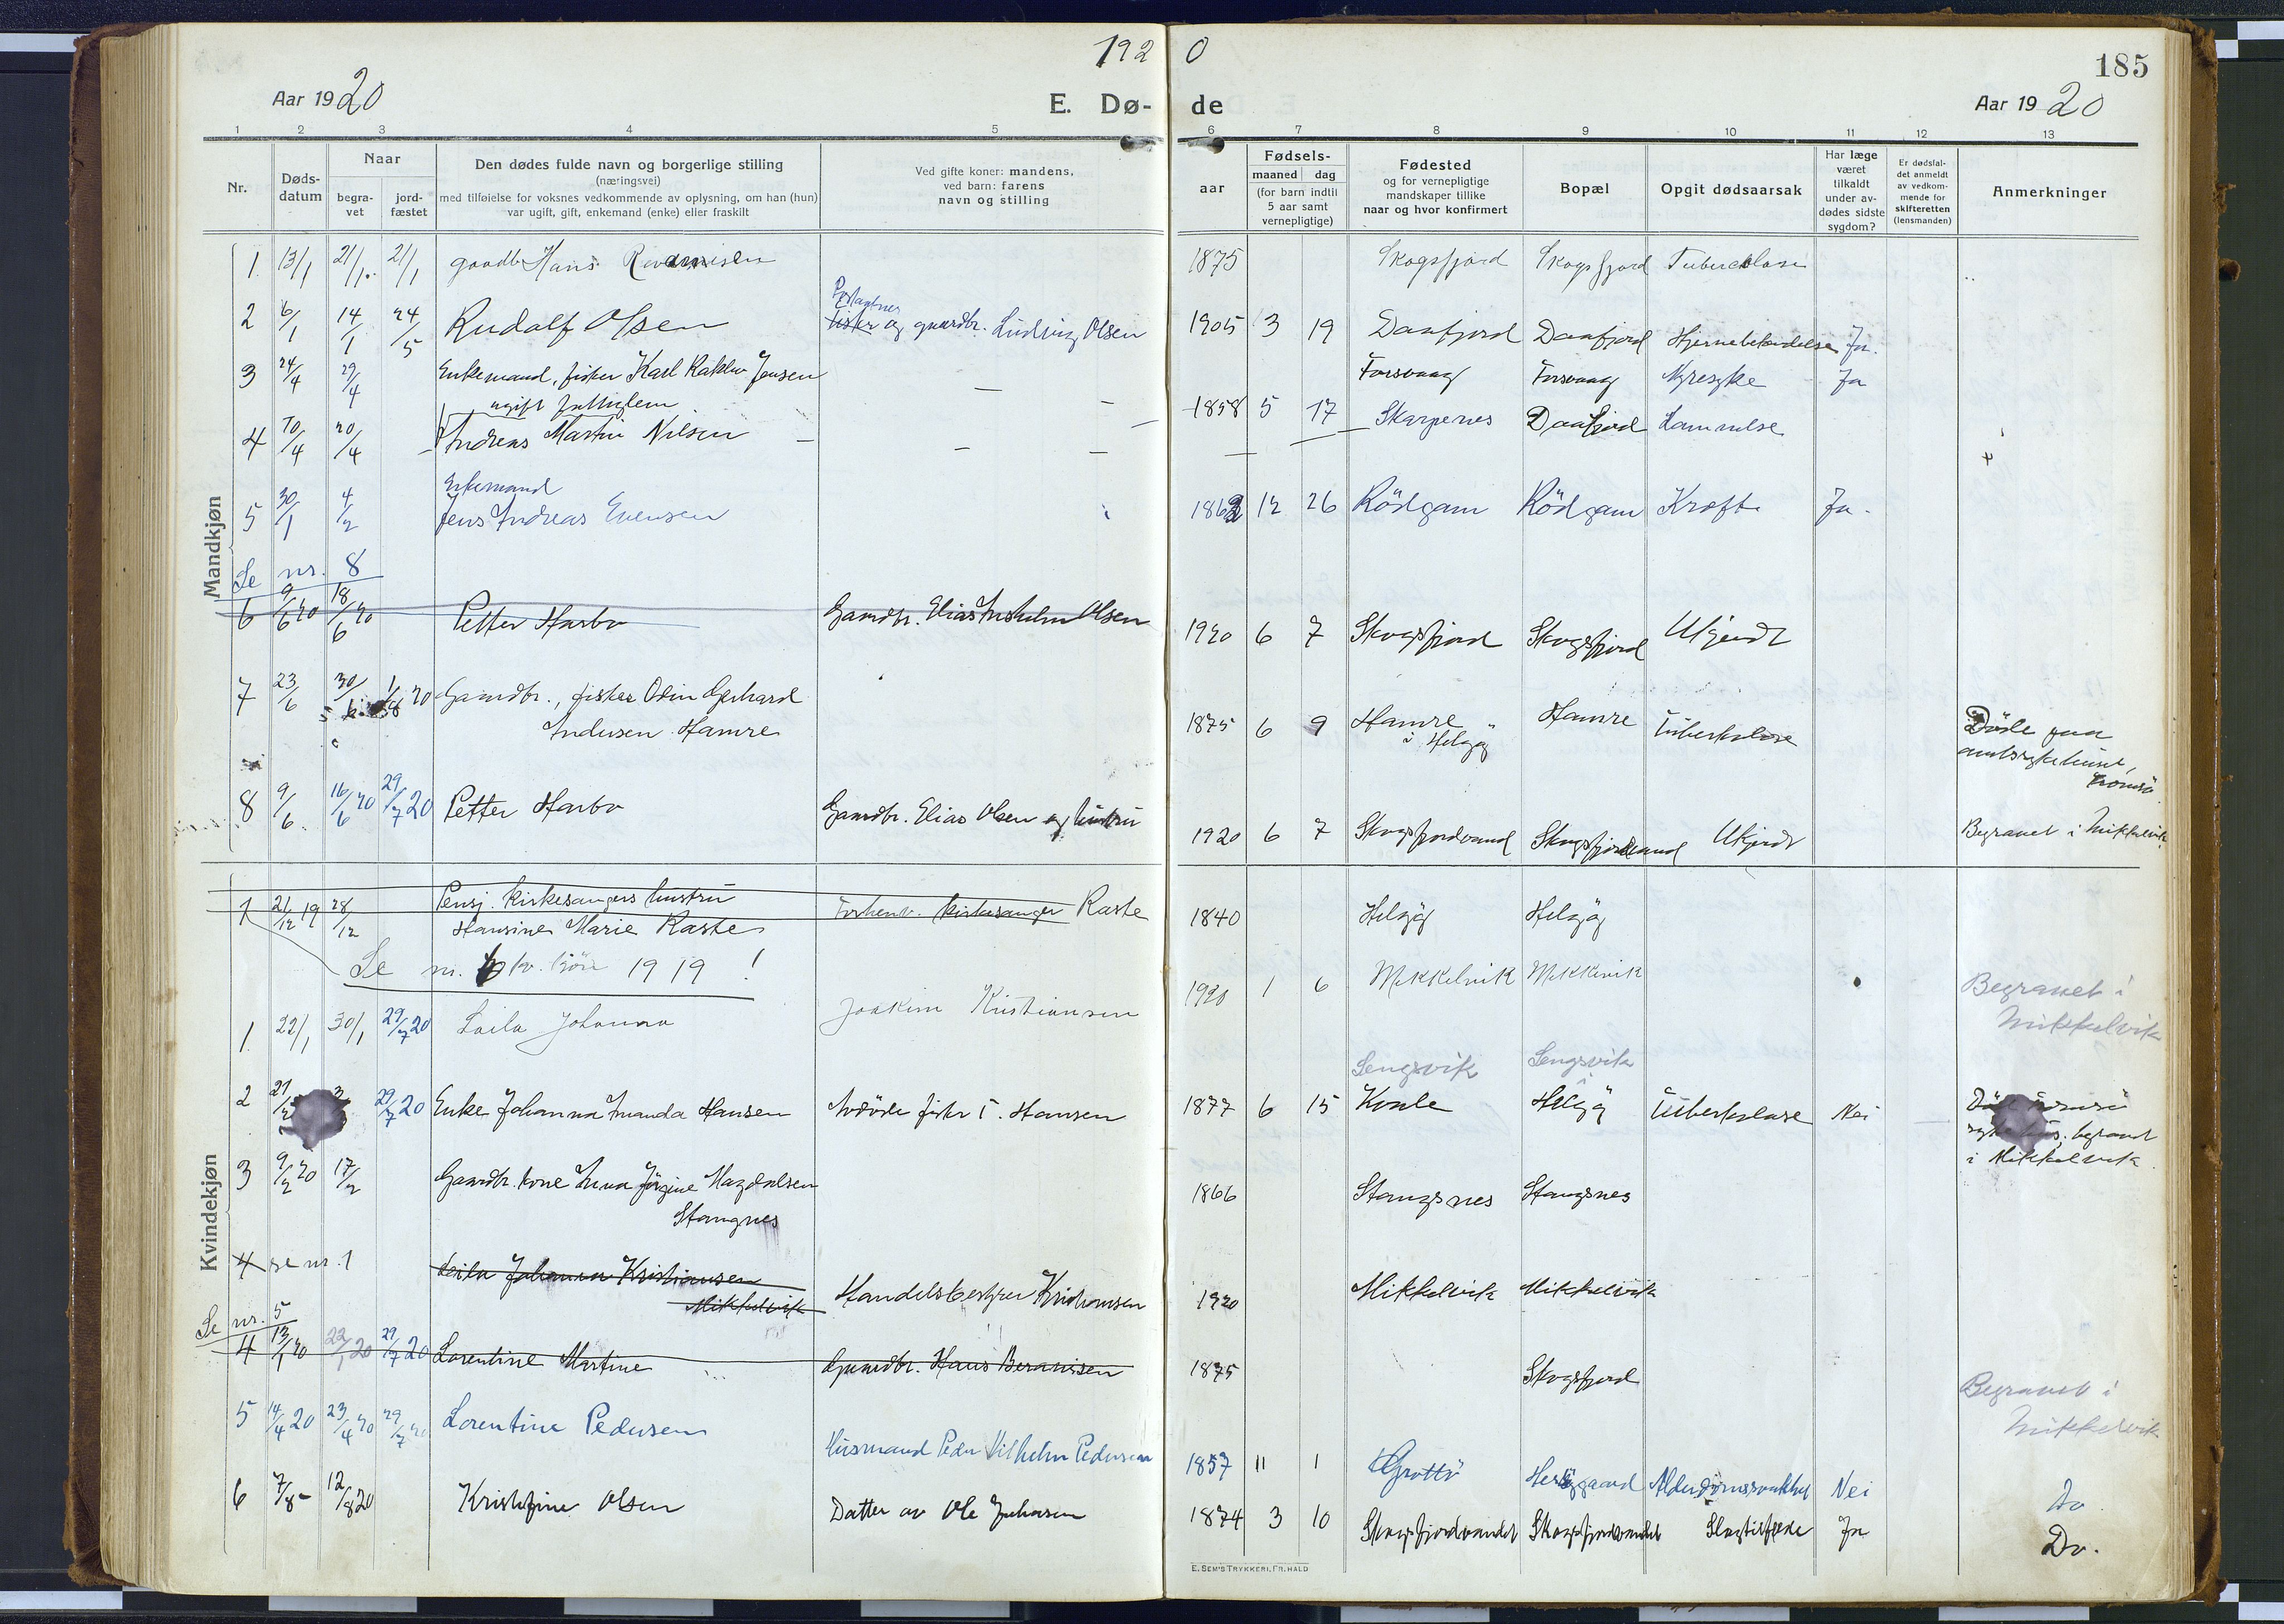 192 0
185
Aar 1920
E. Dø- de
Aar 1920
1 2 3 4 5 6 7 8 9 10 11 12 13
Nr.
Døds-
datum
Naar
begra-
vet
jord-
fæstet
Den dødes fulde navn og borgerlige stilling
(næringsvei)
med tilføielse for voksnes vedkommende av oplysning, om han (hun)
var ugift, gift, enkemand (enke) eller fraskilt
Ved gifte koner: mandens,
ved barn: farens
navn og stilling
aar
Fødsels-
maaned dag
(for barn indtil
5 aar samt
vernepligtige)
Fødested
og for vernepligtige
mandskaper tillike
naar og hvor konfirmert
Bopæl
Opgit dødsaarsak
Har læge
været
tilkaldt
under av-
dødes sidste
sygdom?
Er dødsfal-
det anmeldt
av vedkom-
mende for
skifteretten
(lensmanden)
Anmerkninger
Mandkjøn
1. 13/1 21/1. 21/1 gaardb Hans 1875 Skogsfjord Skogsfjord Tuberculose
2 6/1 14/1 24/5 Rudolf Olsen Fisker og gaardbr. Ludvig Olsen 1905 3 19 Daafjord Daafjord Ja.
3 24/4 29/4 Enkemand, fisker Karl Jensen — Torsvaag Torsvaag Nyresyke Ja
ugift
4 10/4 20/4 Andreas Martin Nilsen — 1858 5 17 Skarpenes Daafjord Lammelse
Enkemand
5 30/1 4/2 Jens Andreas Evensen 1862 12 26 Rödgam Rödgam Kræft Ja.
Se nr. 8
6 9/6 20 18/6 20 Petter Harbo Gaardbr. Elias Olsen 1920 6 7 Skogsfjord Skogsfjord Ukjendt
7 23/6 30/6 1/8 20 Gaardbr., fisker Odin Gerhard
Andersen Hamre 1875 6 9 Hamre
i Helgøy Hamre Tuberkulose Döde paa
amtssykehuset,
Tromsø.
8 9/6 16/6 20 29/7 20 Petter Harbo Gaardbr. Elias Olsen og hustru 1920 6 7 Skogsfjordvand Skogsfjordvand Ukjendt Begravet i Mikkelvik.
Kvindekjøn
1 21/12 19 28/12 Pensj. kirkesangers hustru
Hansine Marie Raste Forhenv. kirkesanger Raste 1840 Helgöy Helgöy
Se nr. kv. kjön 1919 !
1. 22/1 30/1 29/7 20 Laila Johanna Joakim Kristiansen 1920 1 6 Mikkelvik Mikkelvik Begravet i
Mikkelvik
Sengsvik Sengsvik
2 29/7 20 Enke Johanna Amanda Hansen Avdøde fisker I. Hansen 1877 6 15 Kvale Helgöy Tuberkulose Nei
begravet
i Mikkelvik.
3 9/2 20 17/2 Gaardbr. kone Anna Jörgine Magdalsen
Stangnes 1866 Stangsnes Stangsnes
4 se nr. 1 Laila Johanna Kristiansen
Mikkelvik Handelsbestyrer Kristiansen 1920 Mikkelvik Mikkelvik
Se nr. 5
4 13/1 20 22/1 20 29/7 20 Lorentine Martine Gaardbr. Hans 1875 Skogsfjord
Begravet i
Mikkelvik
5 14/4 20 23/4 20 29/7 20 Lorentine Pedersen Husmand Peder Vilhelm Pedersen 1857 11 1 Grøttö Nei Do.
6 7/8 12/8 20 Kristofine Olsen Datter av Ole Johansen 1874 3 10 Skogsfjordvandet Skogsfjordvandet Slagtilfælde Ja Do.
E. SEM'S TRYKKERI, FR. HALD